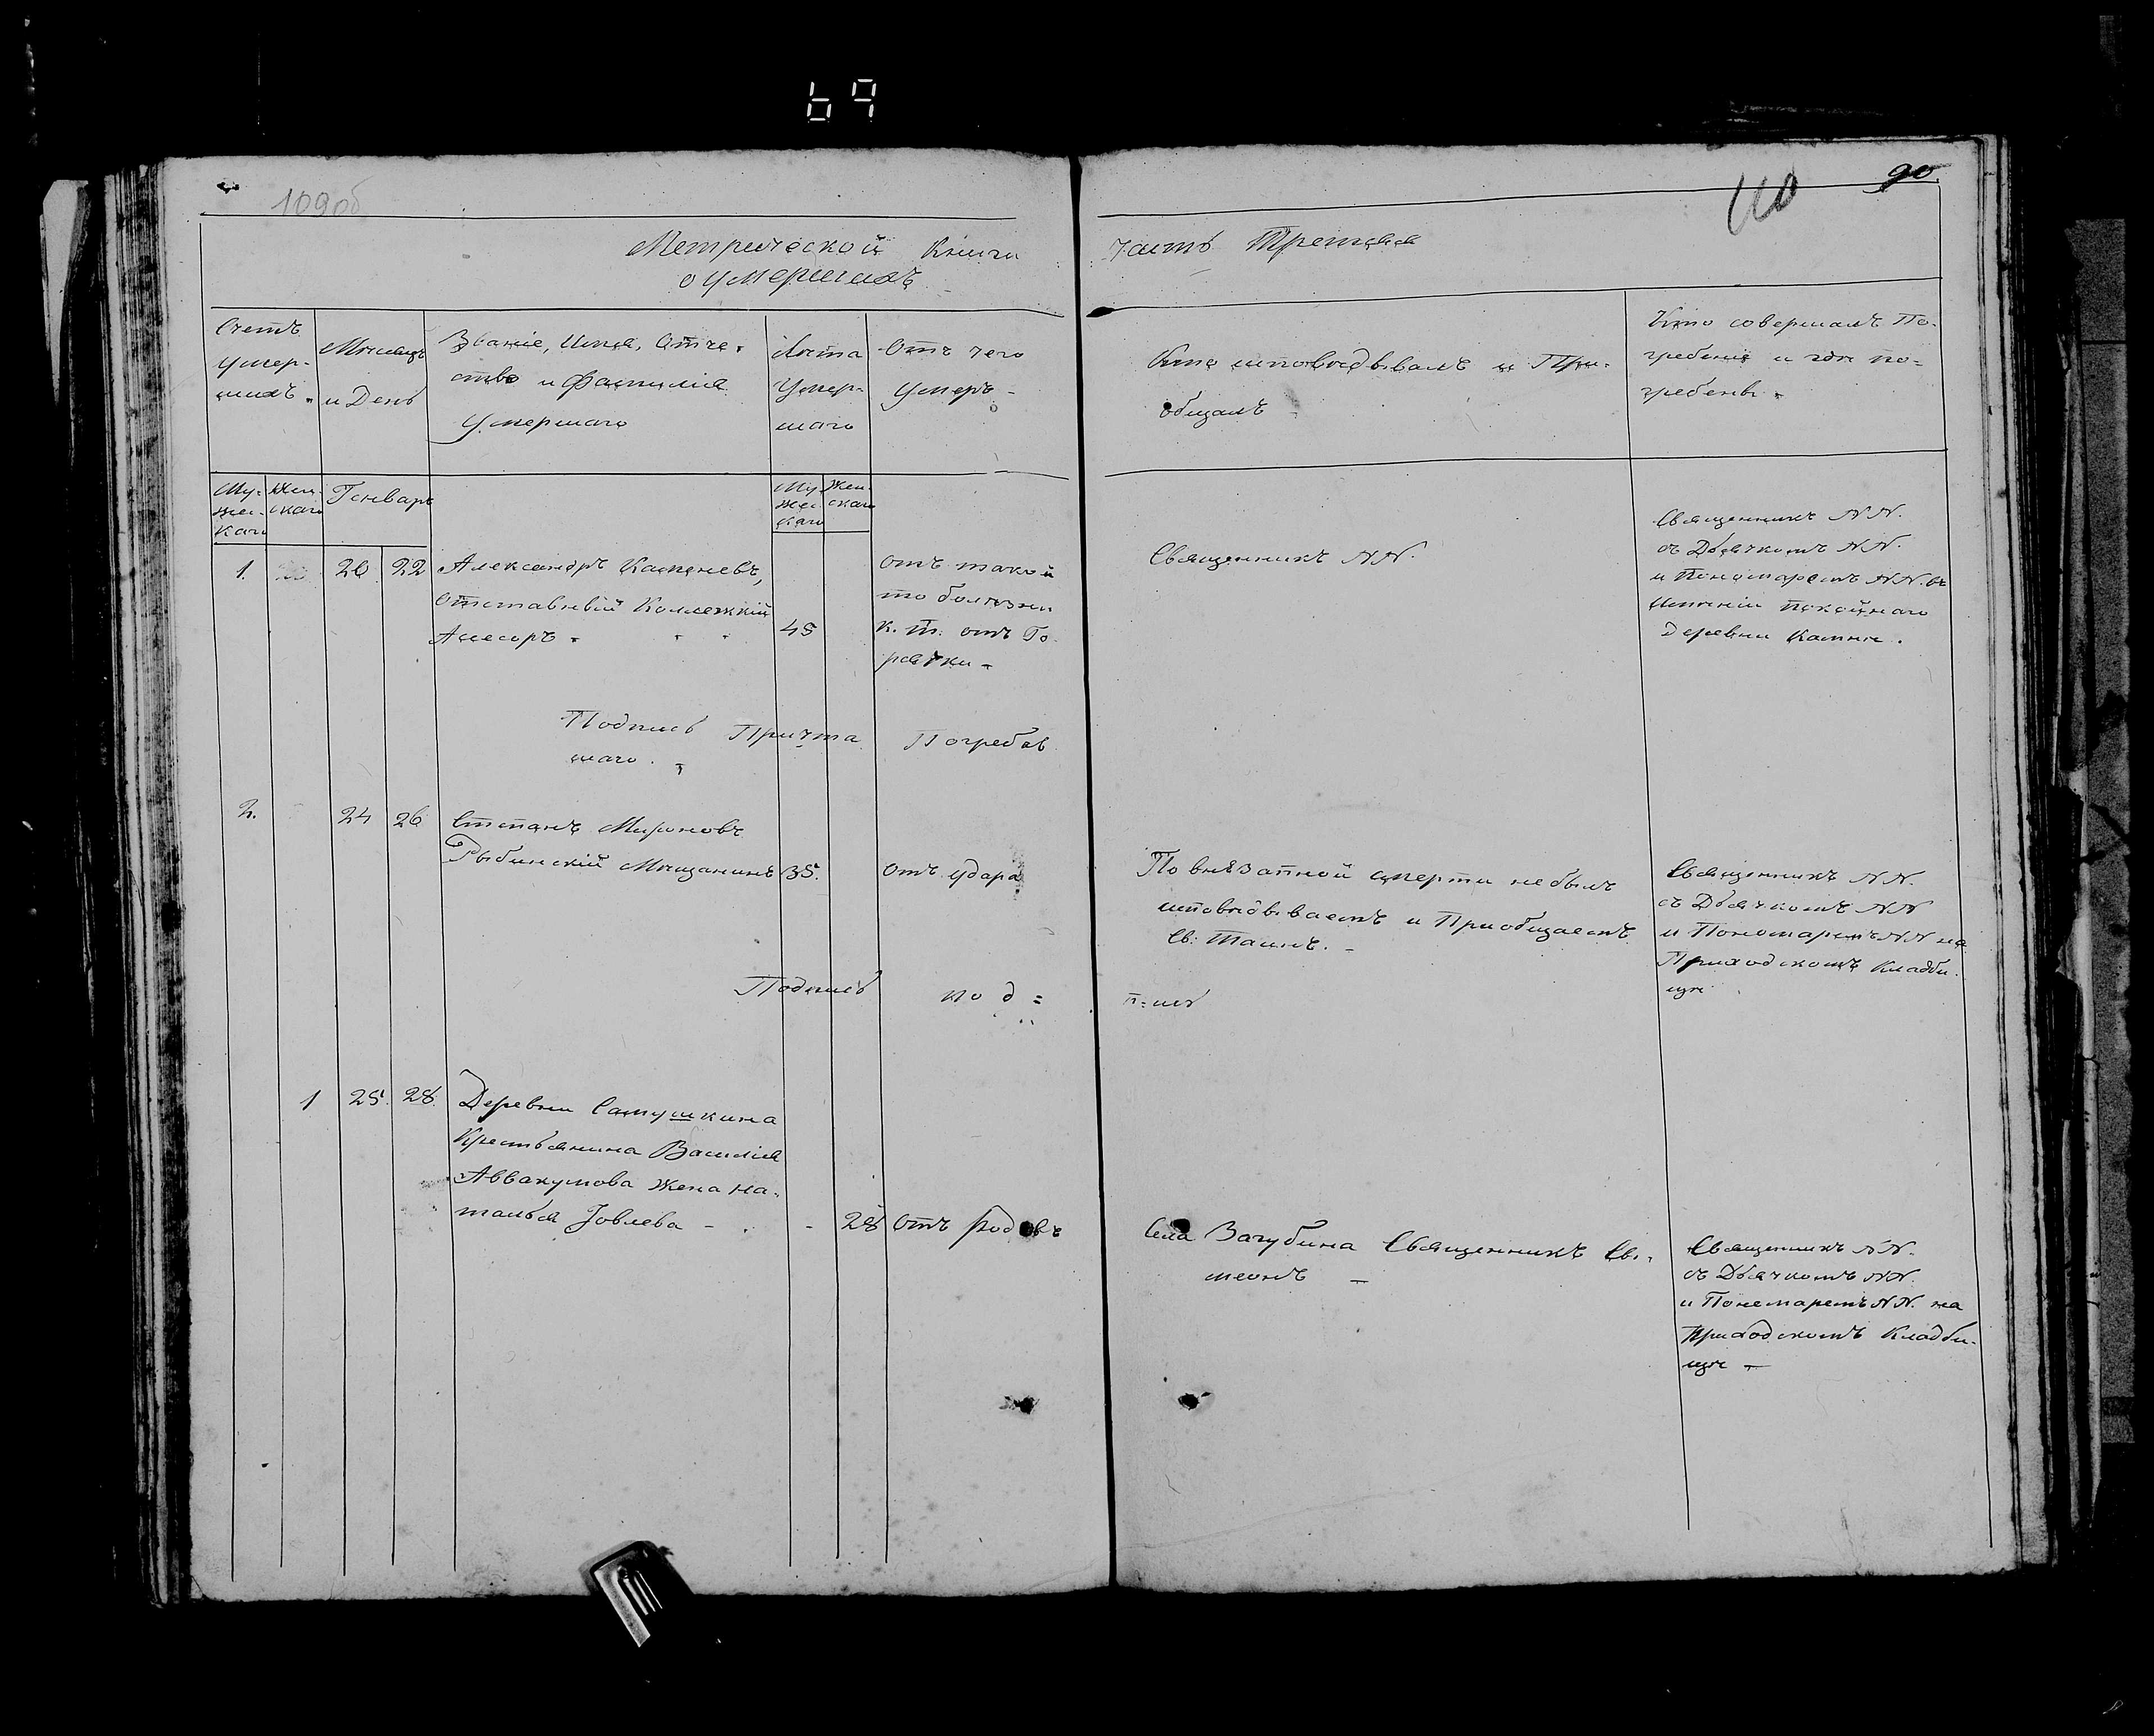 69
109об
110
90.
Метрической Книги
часть Третья
о умершихъ
Счетъ
умер-
шихъ.
Мѣсяцъ
и День
Званіе, Имя, Отче-
ство и Фамилія
Умершаго
Лѣта
Умер-
шаго
Отъ чего
умеръ -
Кто исповѣдывалъ и При-
общалъ -
Кто совершалъ По-
гребеніе и гдѣ по-
гребены -
Му-
жес-
каго
Жен-
скаго
Генварь
Му
жес
каго
Жен-
скаго
1.
20
22
Александръ Каменевъ,
Отставный Коллежкій
Асесоръ -
45
отъ такой
то болѣзни
к. т. отъ Го-
рячки -
Священникъ NN.
Священникъ NN.
съ Дьячкомъ NN.
и Пономаремъ NN. въ
Имѣніи покойнаго
Деревни Камни.
Подпись Причта Погребав
шаго. -
2.
24
26
Степанъ Мироновъ
Рыбинскій Мѣщанинъ
35.
Отъ удара
По внѣзапной смерти небылъ
исповѣдываемъ и Приобщаемъ
Св: Таинъ. -
Священникъ NN.
съ Дьячкомъ NN
и Пономаремъ NN на
Приходскомъ Кладби-
щѣ
Подпись
по д =
п=ись
1
25.
28.
Деревни Самушкина
Крестьянина Василія
Аввакумова жена На-
талья Іовлева -
28
Отъ родовъ
Села Вагубина Священникъ Си-
меонъ -
Священникъ NN.
съ Дьячкомъ NN.
и Пономаремъ NN. на
приходскомъ Кладби-
щѣ -